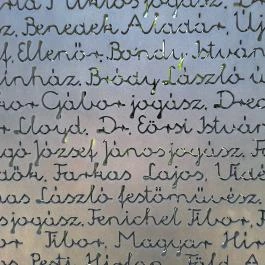 Miklós jogász, D
sz, Benedek Aladár, Új
f, Ellenőr, Bondy István
ínház, Bródy László ú
bor Gábor jogász, Drec
r Lloyd, Dr. Eörsi István
gó József János jogász, F
dók, Farkas Lajos, Vidé
as László festőművész,
s jogász, Fenichel Tibor, F
or Tibor, Magyar Hír
Pesti Hírlap, Föld A